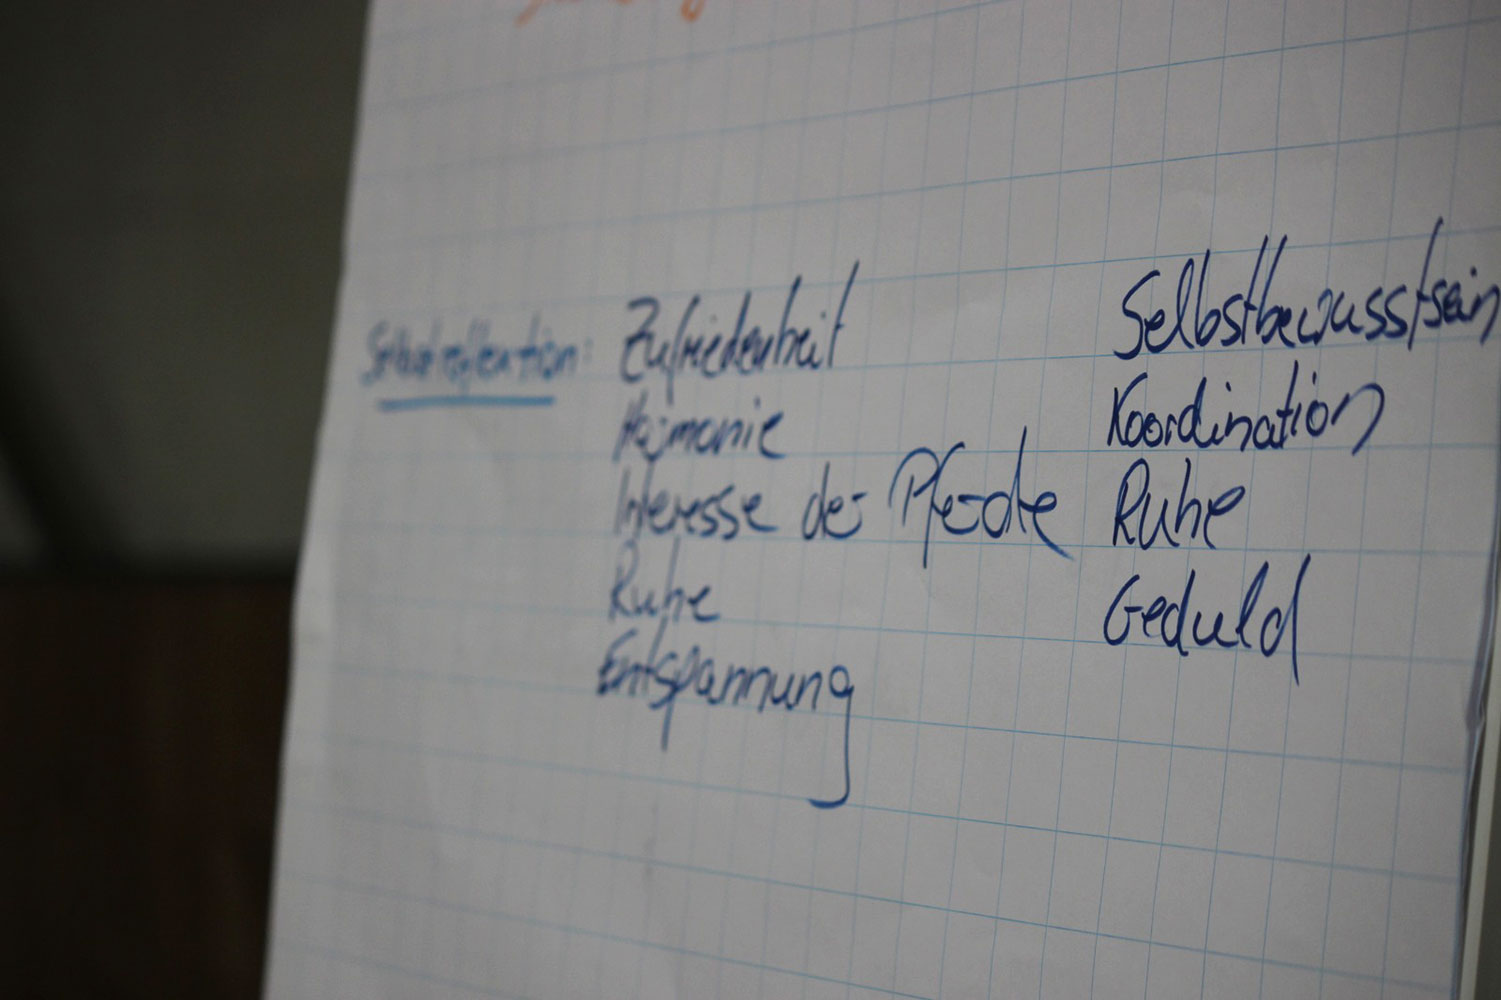 Selbstreflektion: Zufriedenheit Selbstbewusstsein
Harmonie Koordination
Interesse der Pferde Ruhe
Ruhe Geduld
Entspannung